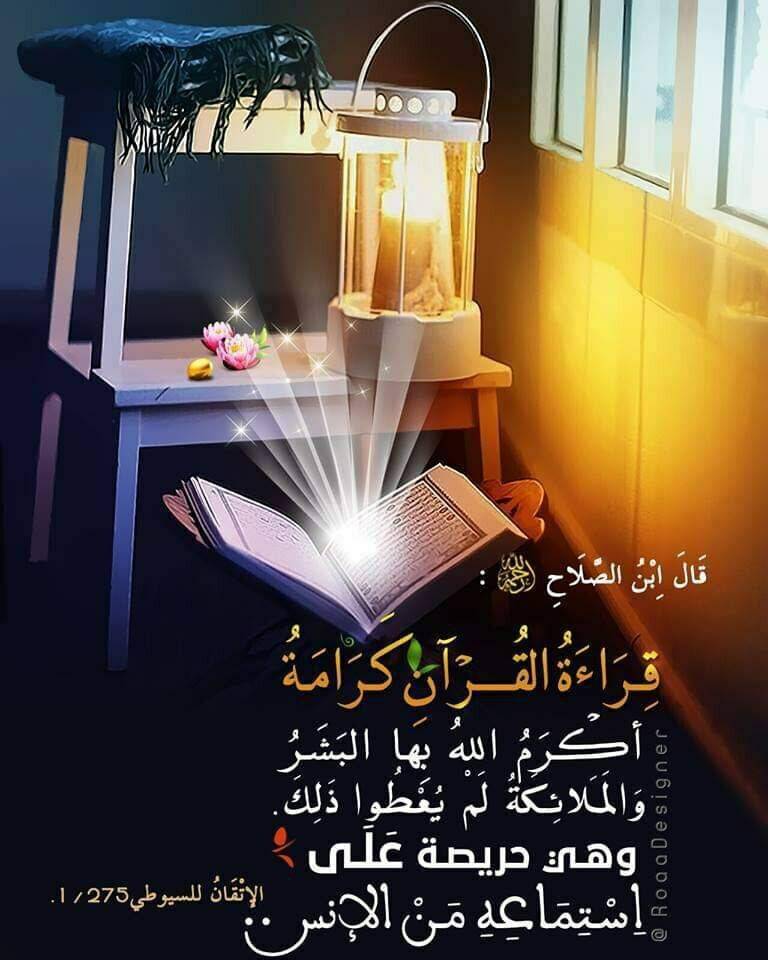 قَالَ اِبْنُ الصَّلَاحِ رحمه الله :
قِرَاءَةُ القُرْآنِ كَرَامَةُ
أكْرَمُ اللهُ بها البَشَرُ
وَالمَلائِكَةُ لَمْ يُعْطُوا ذَلِكَ.
وهي حريصة عَلَى
اِسْتِمَاعِهِ مَنْ الإنس ..
الإتْقَانُ للسيوطي275/1.
@RoaaDesigner